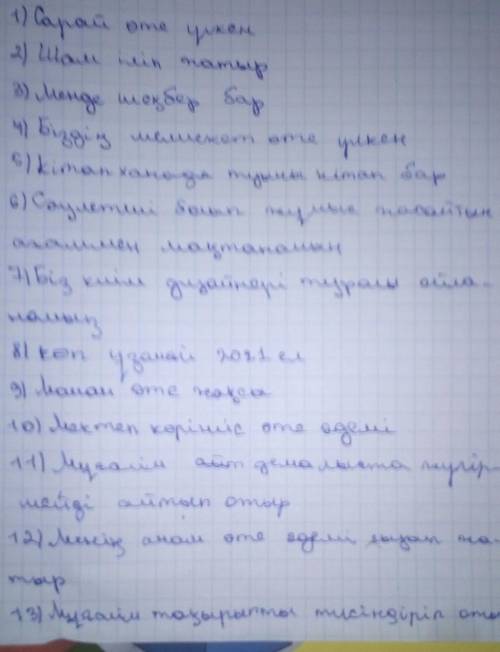 1) Сарай өте үлкен
2) Шам іліп жатыр
3) Менде шеңбер бар
4) Біздің мемлекет өте үлкен
5) Кітапханада кітап бар
6) Сәулетші болып жұмыс жасайтын
мақтанамын
7) Біз киім дизайнері туралы ойла-
намыз
8) көп ұзамай 2021 ел
9) Маман өте жақсы
10) Мектеп көрініс өте әдемі
11) Мұғалім айт демалыста жүгір-
мейді айтып отыр
12) Менің анам өте әдемі жа-
тыр
13) Мұғалім тақырыпты түсіндіріп оты